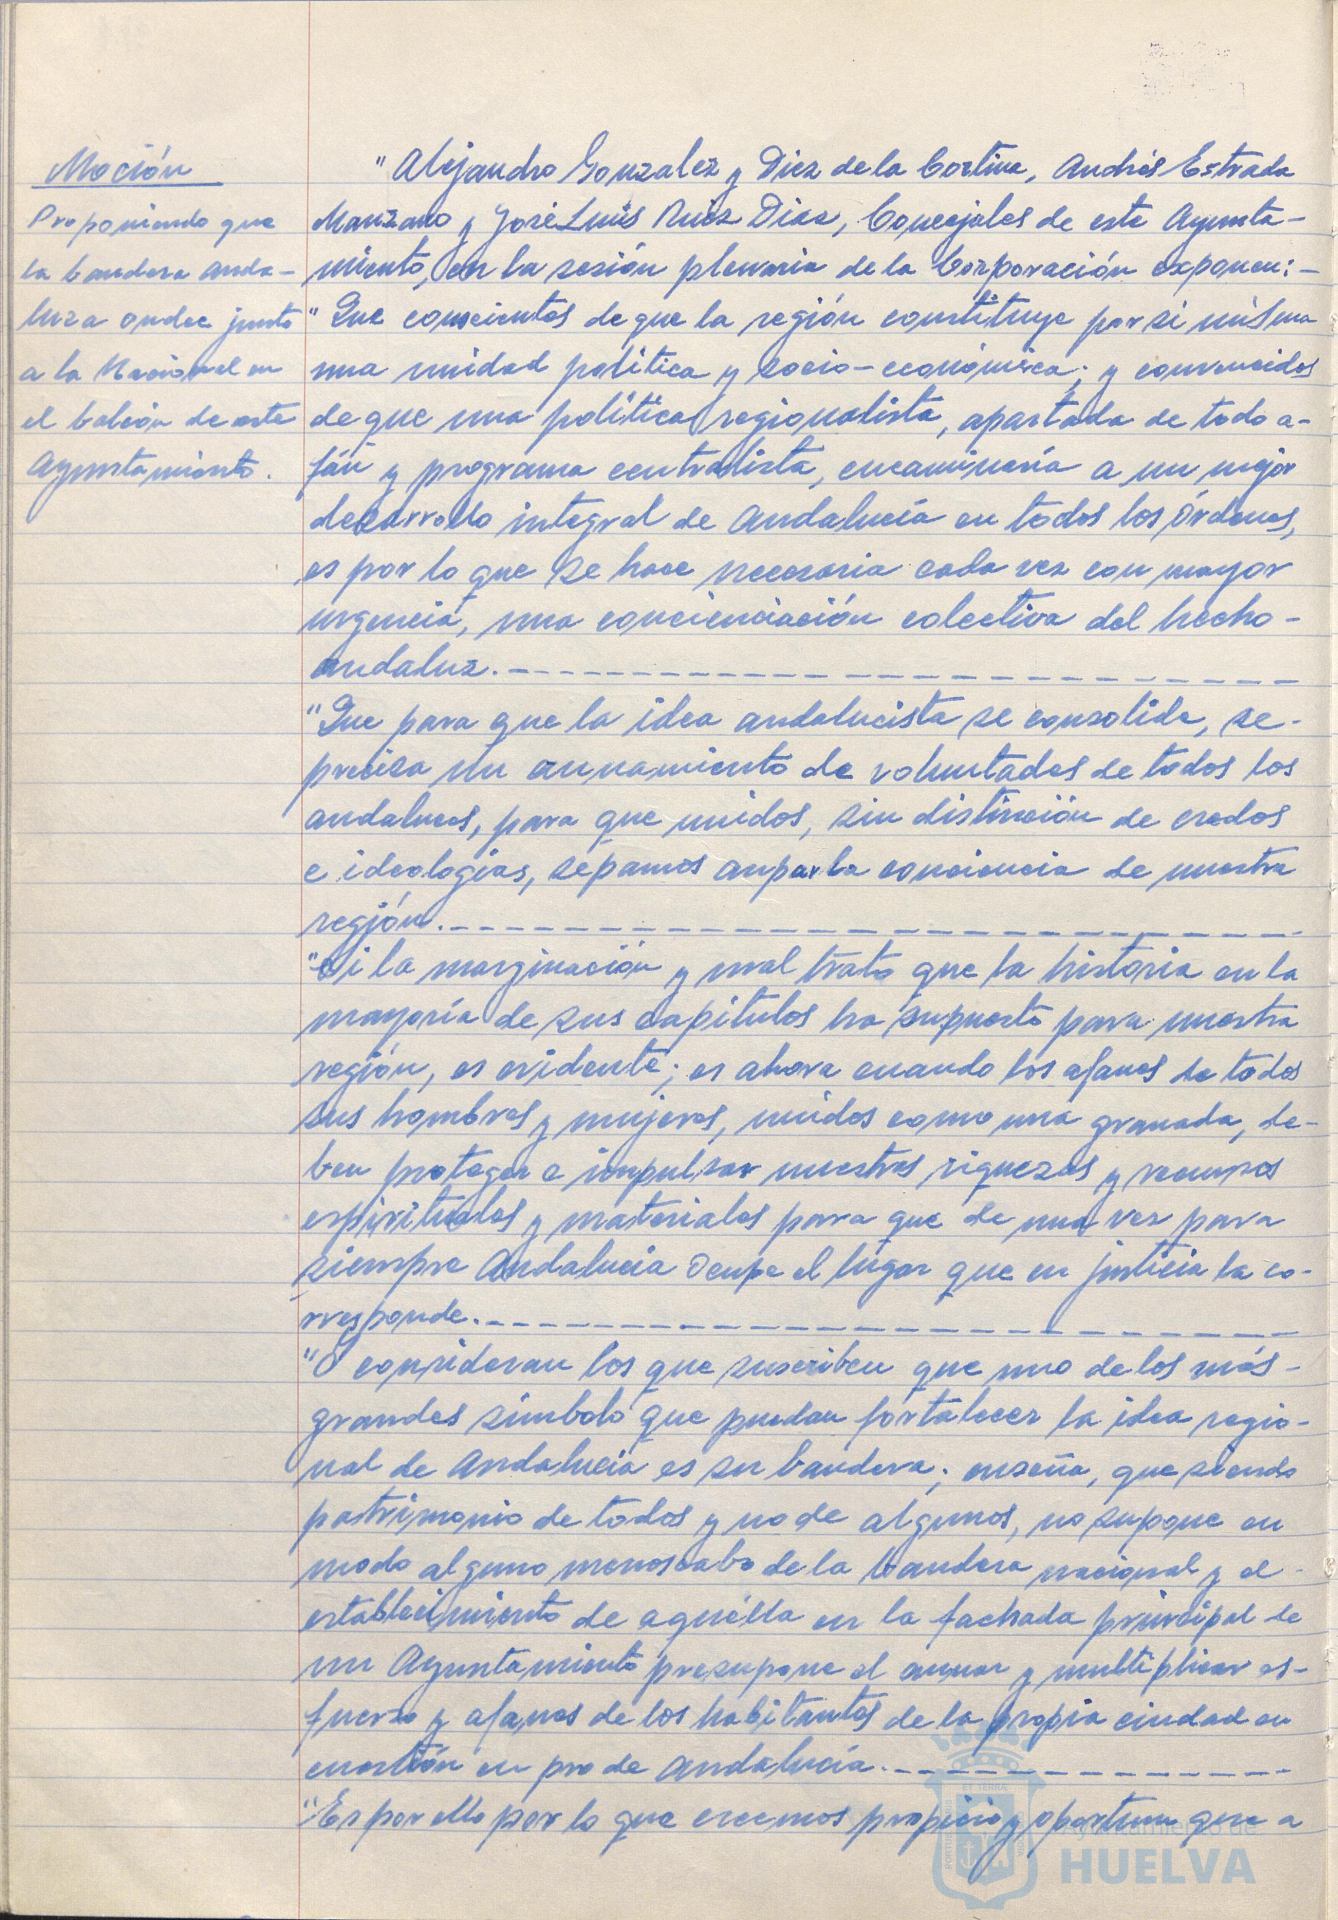 Moción
Proponiendo que
la bandera anda-
luza ondee junto
a la Nacional en
el balcón de este
Ayuntamiento.
"Alejandro Gonzalez y Diez de la Cortina, Andrés Estrada
Manzano y José Luis Ruiz Diaz, Concejales de este Ayunta-
miento, en la sesión plenaria de la Corporación exponen:-
"Que conscientes de que la región constituye por si misma
una unidad política y socio-económica; y convencidos
de que una política regionalista, apartada de todo a-
fán y programa centralista, encaminaría a un mejor
desarrollo integral de Andalucía en todos los órdenes,
es por lo que se hace necesaria cada vez con mayor
urgencia, una concienciación colectiva del hecho-
andaluz.
"Que para que la idea andalucista se consolide, se-
precisa un aunamiento de voluntades de todos los
andaluces, para que unidos, sin distinción de credos
e ideologias, sepamos aupar la conciencia de nuestra
región.
"Si la marginación y mal trato que la historia en la
mayoría de sus capitulos ha supuesto para nuestra
región, es evidente; es ahora cuando los afanes de todos
sus hombres y mujeres, unidos como una granada, de-
ben proteger e impulsar nuestras riquezas y recursos
espirituales y materiales para que de una vez para
siempre Andalucia ocupe el lugar que en justicia la co-
rresponde.
"Y consideran los que suscriben que uno de los más-
grandes simbolo que puedan fortalecer la idea regio-
nal de Andalucia es su bandera; enseña, que siendo
patrimonio de todos y no de algunos, no supone en
modo alguno menoscabo de la bandera nacional y el-
establecimiento de aquélla en la fachada principal de
un Ayuntamiento presupone el aunar y multiplicar es-
fuerzo y afanes de los habitantes de la propia ciudad en
cuestión en pro de Andalucía.
"Es por ello por lo que creemos propicio y oportuno que a
Ayuntamiento de
HUELVA